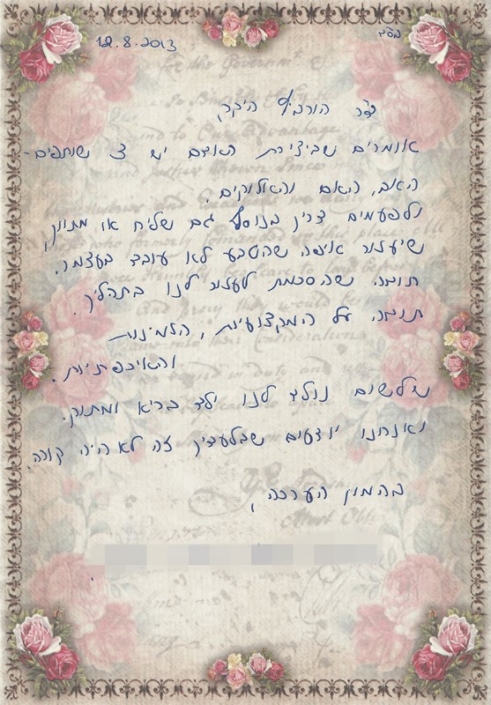 בס"ד
12.8.2013
ד"ר הורביץ היקר,
אומרים שביצירת האדם יש 3 שותפים-
האב, האם והאלוקים.
ולפעמים צריך בנוסף גם שליח או מתווך,
שיעזור איפה שהטבע לא עובד בעצמו.
תודה שהסכמת לעזור לנו בתהליך.
תודה על המקצועיות, הזמינות
והאיכפתיות.
שלשום נולד לנו ילד בריא ומתוק.
ואנחנו יודעים שבלעדיך זה לא היה קורה.
בהמון הערכה,